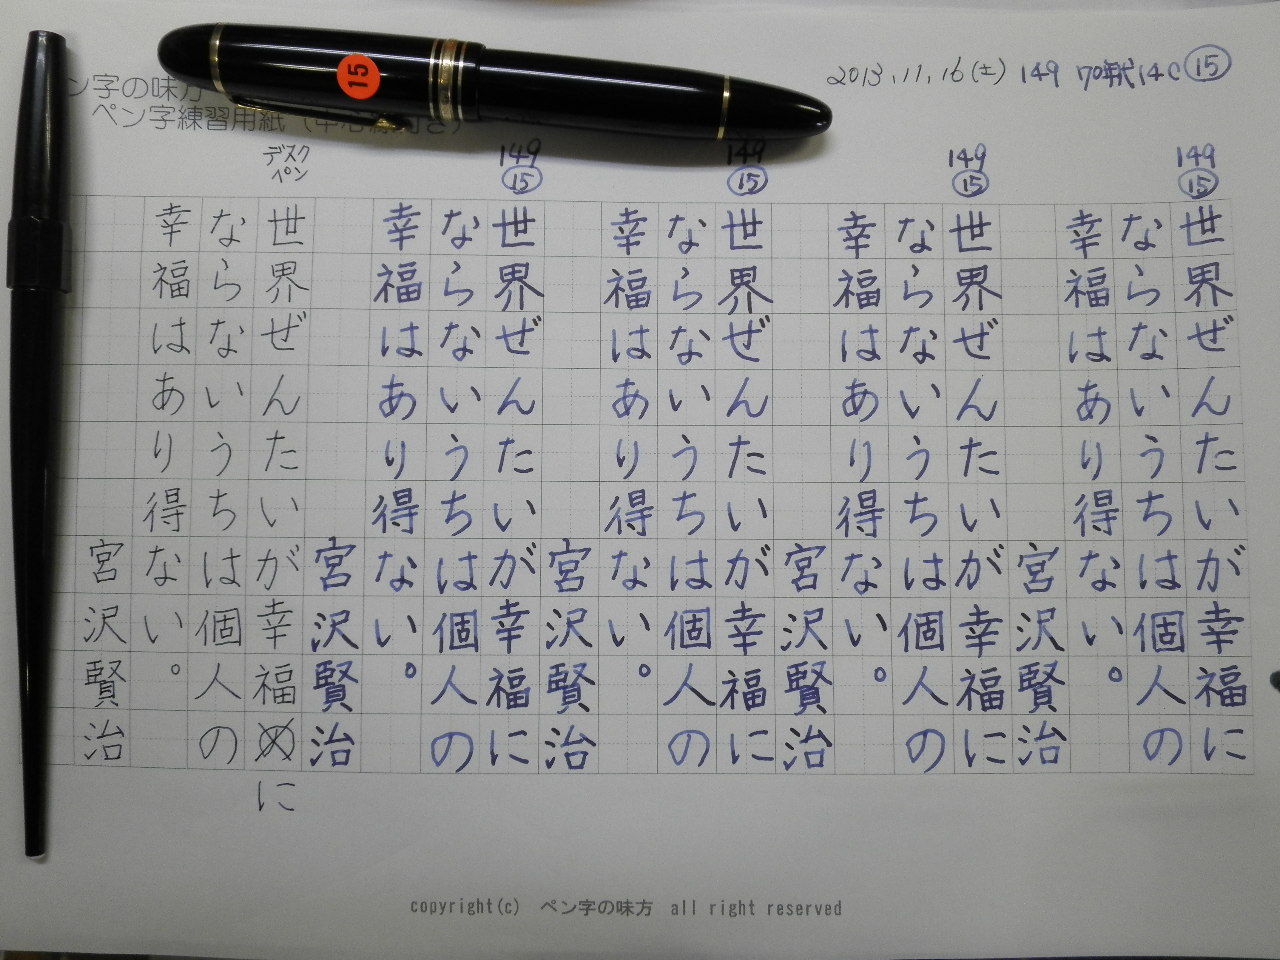 ン字の味方
ペン字練習用紙
15
2013.11.16(土) 149 70年代14C ⑮
149
⑮
世界ぜんたいが幸福に
ならないうちは個人の
幸福はあり得ない。
宮沢賢治
149
⑮
世界ぜんたいが幸福に
ならないうちは個人の
幸福はあり得ない。
宮沢賢治
149
⑮
世界ぜんたいが幸福に
ならないうちは個人の
幸福はあり得ない。
宮沢賢治
149
⑮
世界ぜんたいが幸福に
ならないうちは個人の
幸福はあり得ない。
宮沢賢治
デスク
ペン
世界ぜんたいが幸福に
ならないうちは個人の
幸福はあり得ない。
宮沢賢治
copyright(c) ペン字の味方 all right reserved